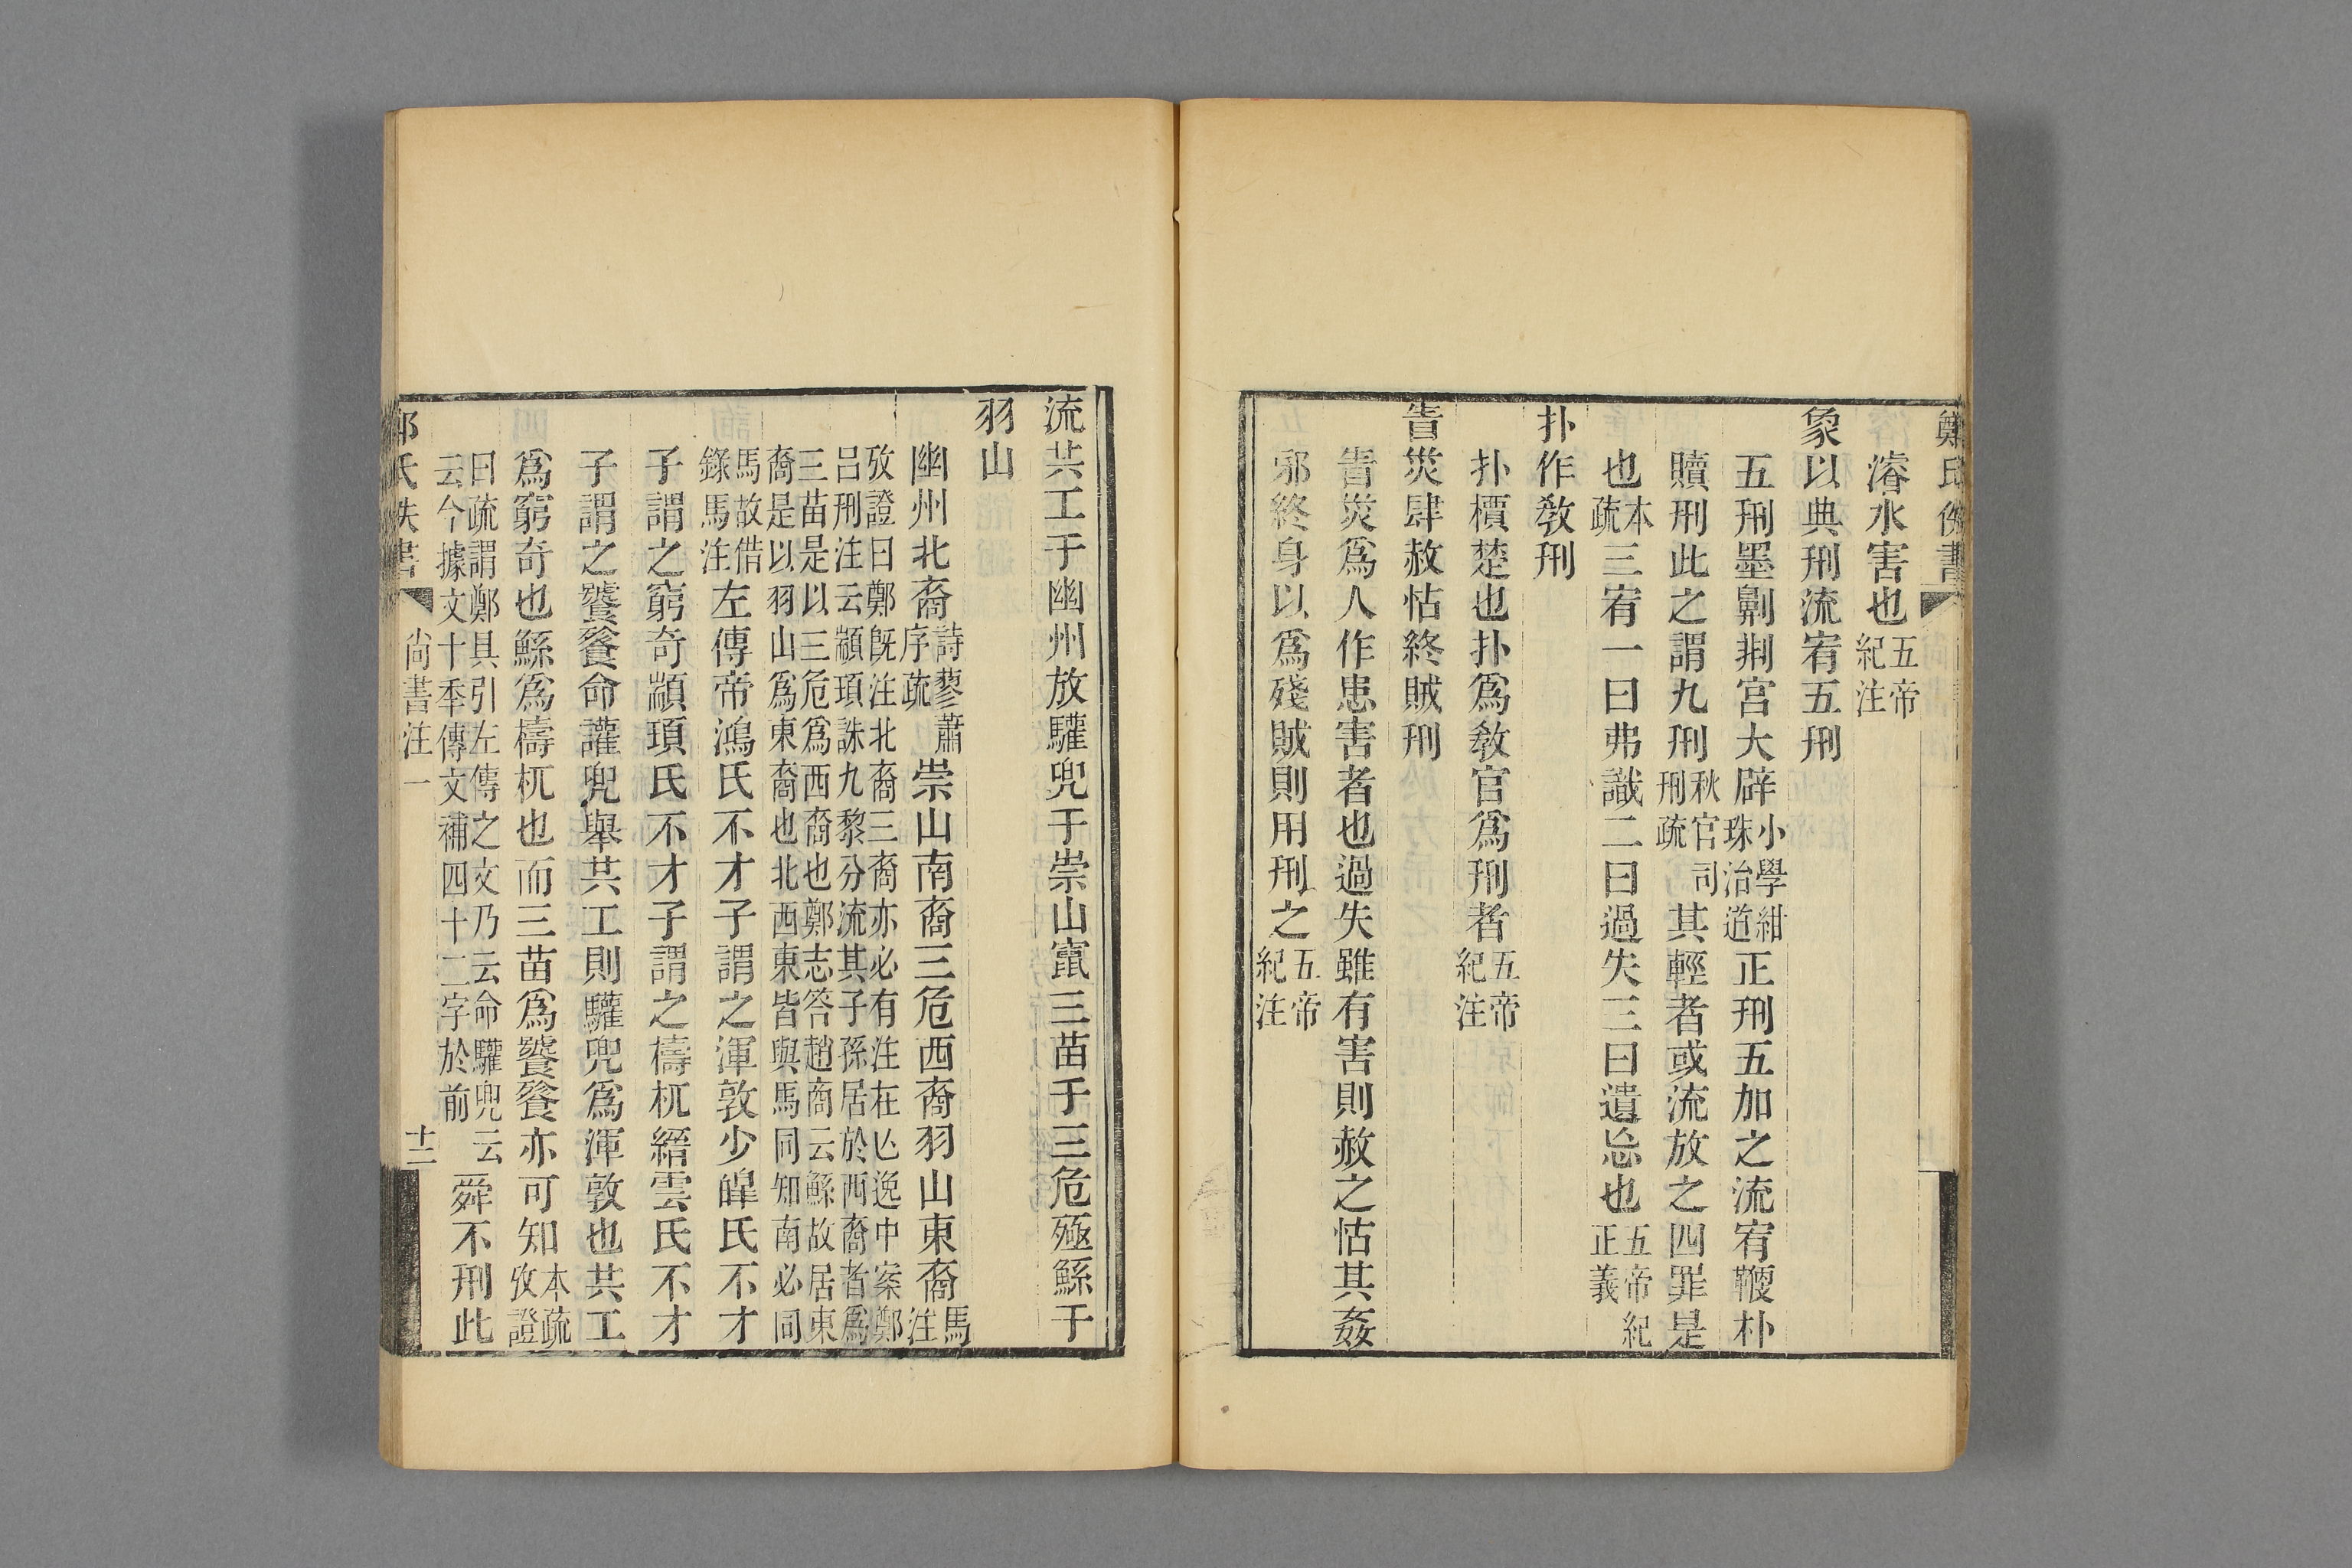 鄭氏佚書
濬水害也五帝紀注
象以典刑流宥五刑
五刑墨劓荆宮大辟小學紺珠治道正刑五加之流宥鞭朴
贖刑此之謂九刑秋官司刑疏其輕者或流放之四罪是
也本疏三宥一曰弗識二曰過失三曰遺忘也五帝紀正義
扑作敎刑
扑檟楚也扑爲敎官爲刑者五帝紀注
眚災肆赦怙終賊刑
眚災爲人作患害者也過失雖有害則赦之怙其姦
邪終身以爲殘賊則用刑之五帝紀注
流共工于幽州放驩兜于崇山竄三苗于三危殛鯀于
羽山
幽州北裔詩蓼蕭序疏崇山南裔三危西裔羽山東裔馬鄭注
攷證曰鄭旣注北裔三裔亦必有注在匕逸中案鄭
呂刑注云顓頊誅九黎分流其子孫居於西裔者爲
三苗是以三危爲西裔也鄭志答趙商云鯀故居東
裔是以羽山爲東裔也北西東皆與馬同知南必同
馬故借錄馬注左傳帝鴻氏不才子謂之渾敦少皥氏不才
子謂之窮奇顓頊氏不才子謂之檮杌縉雲氏不才
子謂之饕餮命讙兜舉共工則驩兜爲渾敦也共工
爲窮奇也鯀爲檮杌也而三苗爲饕餮亦可知本疏攷證
曰疏謂鄭具引左傳之文乃云命驩兜云云今據文十秊傳文補四十二字於前舜不刑此
氏佚書 尙書注一 十二